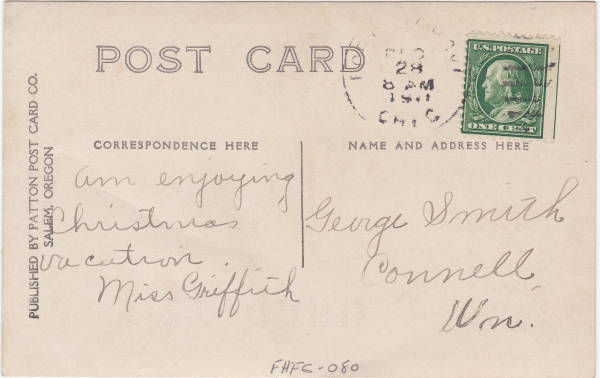 POST CARD
DEC
28
8 AM
1911
U.S. POSTAGE
ONE CENT
PUBLISHED BY PATTON POST CARD CO.
SALEM, OREGON
CORRESPONDENCE HERE
Am enjoying
Christmas
vacation.
Miss Griffith
NAME AND ADDRESS HERE
George Smith
Connell,
Wn.
FHFC-080